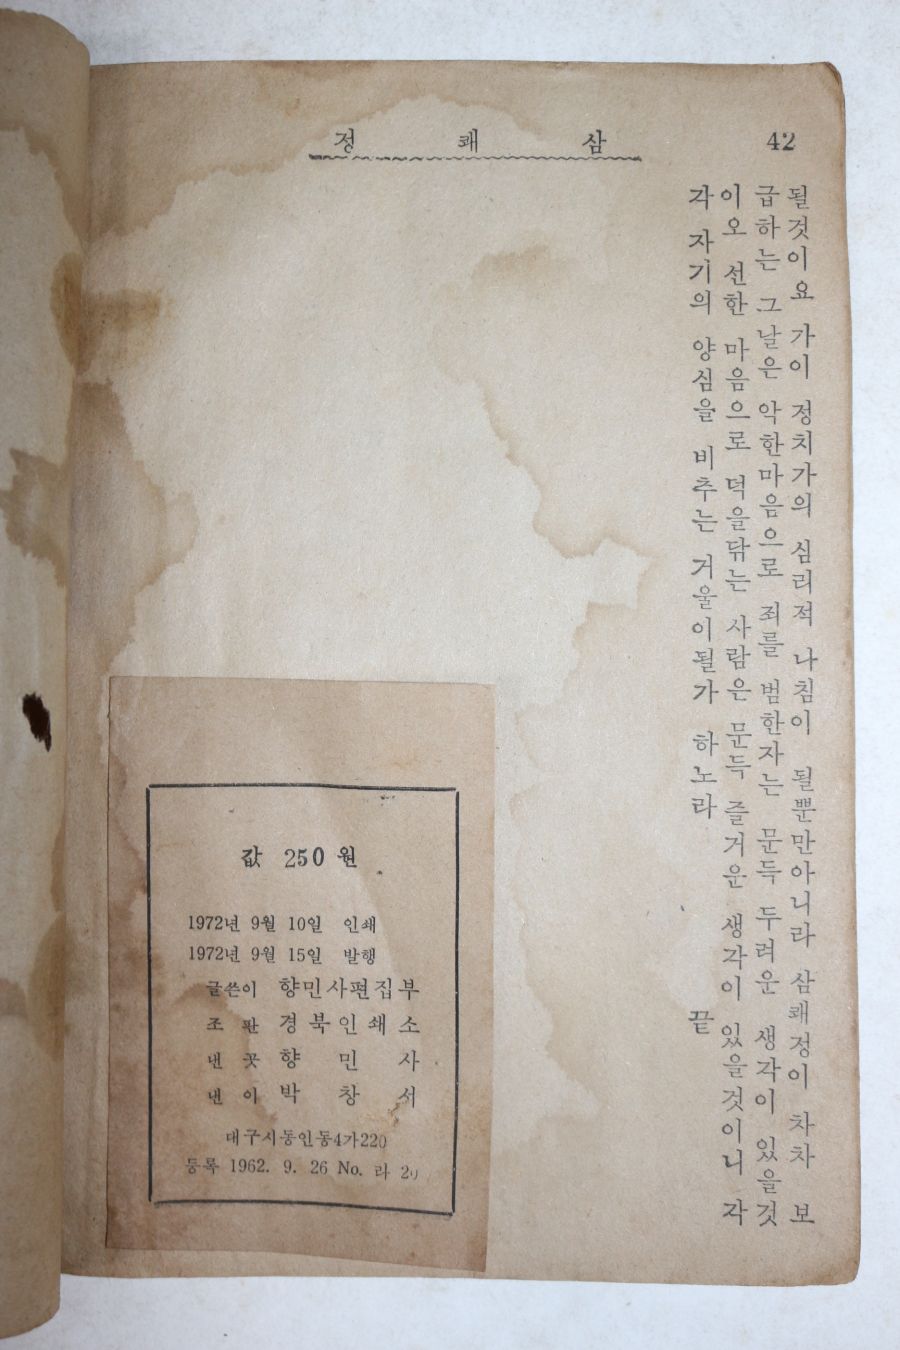 정 쾌 삼
42
될것이요 가이 정치가의 심리적 나침이 될뿐만아니라 삼쾌정이 차차 보
급하는 그날은 악한마음으로 죄를 범한자는 문득 두려운 생각이 있을것
이오 선한 마음으로 덕을닦는 사람은 문득 즐거운 생각이 있을것이니 각
각 자기의 양심을 비추는 거울이될가 하노라 끝
값 250원
1972년 9월 10일 인쇄
1972년 9월 15일 발행
글쓴이 향민사편집부
조 판 경북인쇄소
낸 곳 향 민 사
낸 이 박 창 서
대구시동인동4가220
등록 1962. 9. 26 No. 라 20